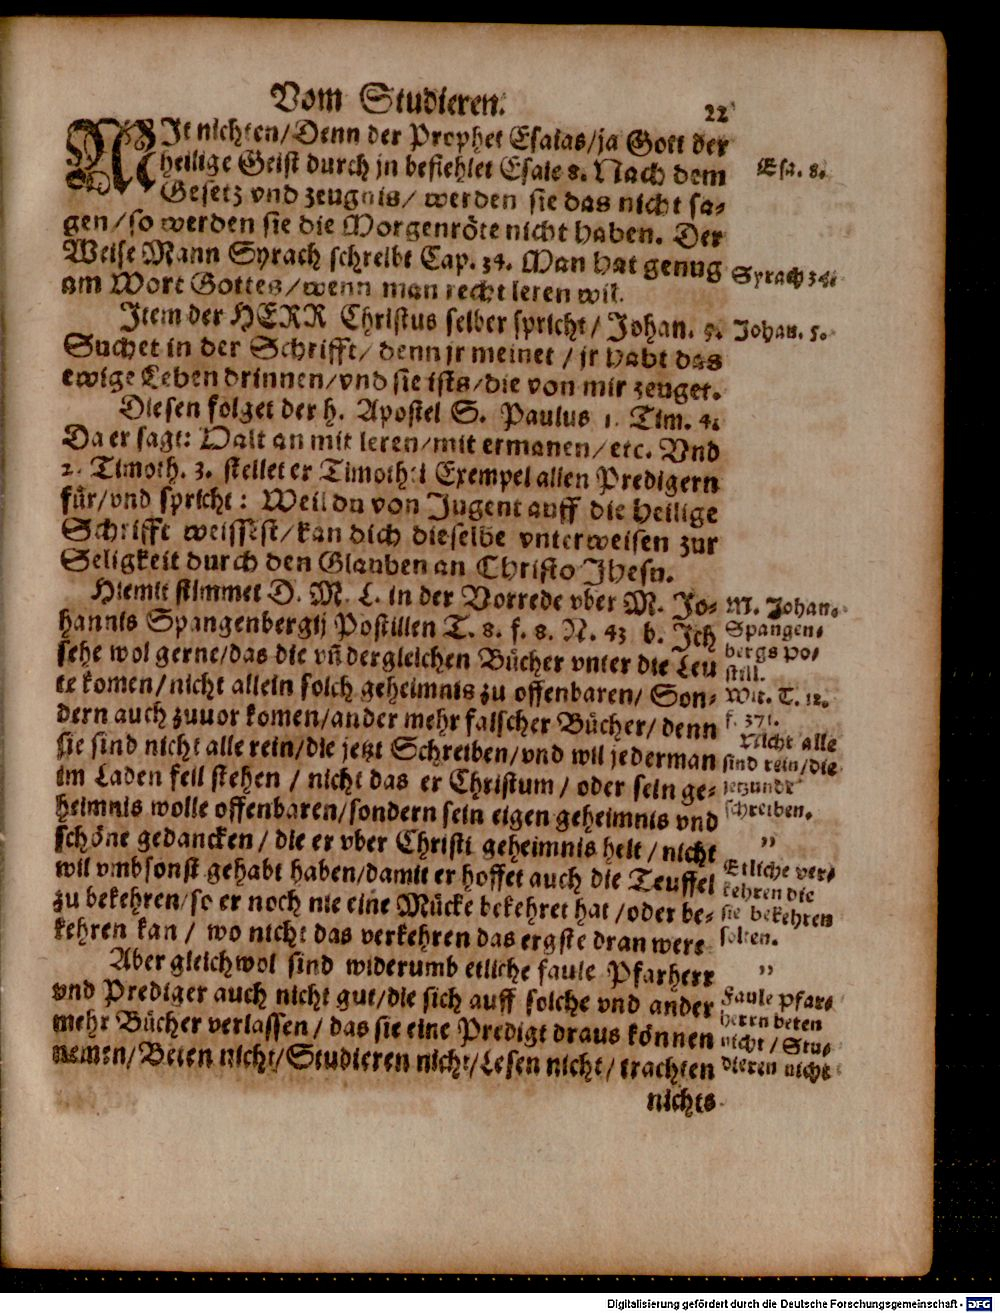 Vom Studieren. 22
MIt nichten/Denn der Prophet Esaias/ja Gott der
heilige Geist durch jn befiehlet Esaie 8. Nach dem
Gesetz vnd zeugnis/ werden sie das nicht sa-
gen/so werden sie die Morgenröte nicht haben. Der
Weise Mann Syrach schreibt Cap. 34. Man hat genug
am Wort Gottes/wenn man recht leren wil.
Item der HERR Christus selber spricht/ Johan. 5.
Suchet in der Schrifft/ denn jr meinet / jr habt das
ewige Leben drinnen/vnd sie ists/die von mir zeuget.
Diesen folget der h. Apostel S. Paulus 1. Tim. 4.
Da er sagt: Halt an mit leren/mit ermanen/etc. Vnd
2. Timoth. 3. stellet er Timothei Exempel allen Predigern
für/vnd spricht: Weil du von Jugent auff die heilige
Schrifft weissest/kan dich dieselbe vnterweisen zur
Seligkeit durch den Glauben an Christo Jhesu.
Hiemit stimmet D. M. L. in der Vorrede vber M. Jo-
hannis Spangenbergij Postillen T. 8. f. 8. N. 43 b. Ich
sehe wol gerne/das die vñ dergleichen Bücher vnter die Leu
te komen/nicht allein solch geheimnis zu offenbaren/ Son-
dern auch zuuor komen/ander mehr falscher Bücher/ denn
sie sind nicht alle rein/die jetzt Schreiben/vnd wil jederman
im Laden feil stehen / nicht das er Christum / oder sein ge-
heimnis wolle offenbaren/sondern sein eigen geheimnis vnd
schöne gedancken / die er vber Christi geheimnis helt / nicht
wil vmbsonst gehabt haben/damit er hoffet auch die Teuffel
zu bekehren/so er noch nie eine Mücke bekehret hat /oder be-
kehren kan / wo nicht das verkehren das ergste dran were
Aber gleichwol sind widerumb etliche faule Pfarherr
vnd Prediger auch nicht gut/die sich auff solche vnd ander
mehr Bücher verlassen / das sie eine Predigt draus können
nemen/Beten nicht/Studieren nicht/Lesen nicht/ trachten
nichts
Esa. 8.
Syrach 34.
Johan. 5.
M. Johan.
Spangen-
bergs po-
still.
Wit. T. 12.
f. 371.
Nicht alle
sind rein/die
jetzundt
schreiben.
"
Etliche ver-
kehren die
sie bekehren
solten.
"
Faule Pfar-
herrn beten
nicht / Stu-
dieren nicht
Digitalisierung gefördert durch die Deutsche Forschungsgemeinschaft - DFG